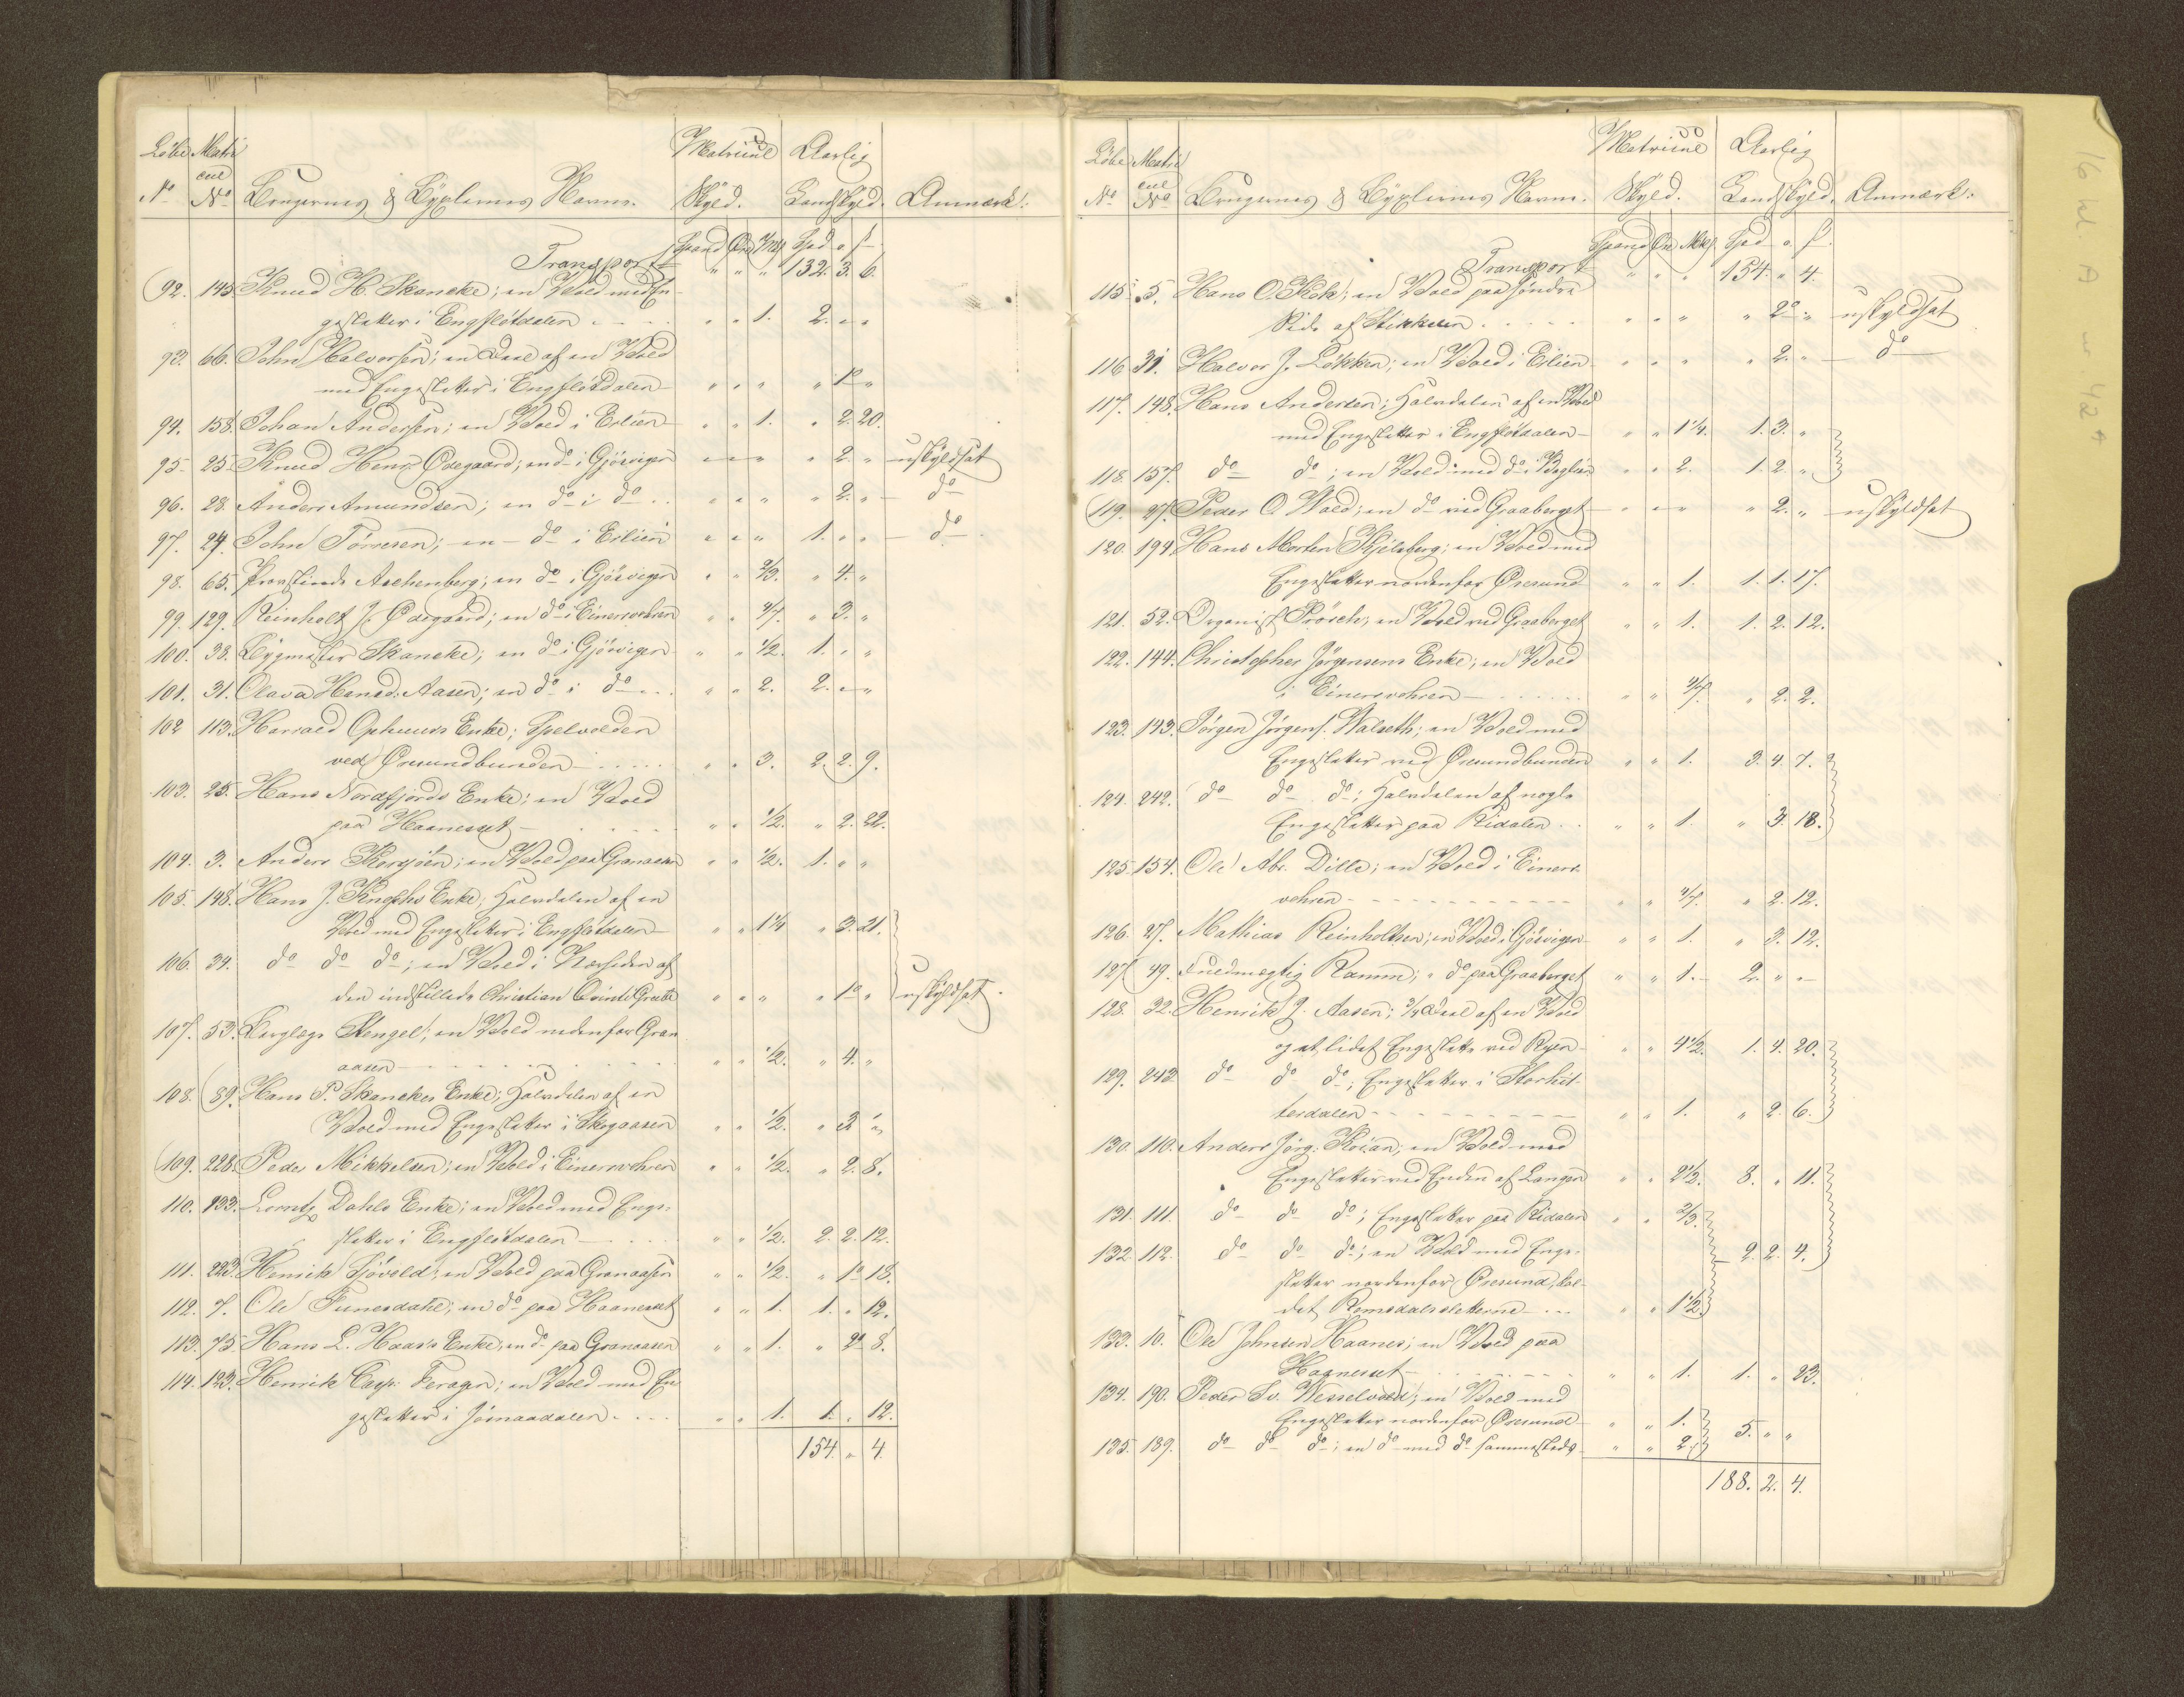 Löbe Matri Matricul Aarlig
No cul No Brugernes & Bÿxlernes Navne. Skyld. Landskyld. Anmærk:
Transport Spand Öre Mkl Spd o ß
" " " 132. 3. 6.
92. 145 Knud H. Skancke; en Vold med En-
gesletter i Engfløtdalen " " 1. 2. " "
93. 66. John Halvorsen; en Deel af en Vold
med Engesletter i Engfløtdalen " " " " 1 "
94. 158. Johan Andersen; en Vold i Erlien " " 1. " 2. 20.
95. 25 Knud Hens. Ødegaard; en do i Gjösvigen " " " " 2. " uskyldsat
96. 28. Anders Amundsen; en do i do " " " " 2. " do
97. 24. John Tönnesen; en do i Erlien " " " 1. " " do
98. 65. Provstinde Aschenberg; en do i Gjösvigen " " 2/3. " 4. "
99. 129. Reinholt J. Ødegaard; en do i Einersvohren " " 4/7. " 3. "
100. 38. Bygmester Skancke; en do i Gjösvigen " " 1/2. 1. " "
101. 31. Olava Hansd. Aasen; en do i do " " 2. 2. " "
102 113. Harald Ophuus's Enke; Spelvolden
ved Øresundbunden " " 3. 2. 2. 9.
103. 25. Hans Nordfjords Enke; en Vold
paa Haanesset " " 1/2. " 2. 22.
104. 3. Anders Korsjöen; en Vold paa Granaasen " " 1/2. 1. " "
105. 148. Hans J. Knophs Enke; Halvdelen af en
Vold med Engesletter i Engfløtdalen " " 1 1/4 " 3. 21.
106. 34. do do do; en Vold i Nærheden af
den indstillede Christian Qvinti Grube " " " " 1 " uskyldsat
107. 53. Berglæge Stengel; en Vold nedenfor Gran
aasen " " 1/2. " 4. "
108. 89. Hans P. Skanckes Enke; Halvdelen af en
Vold med Engesletter i Skogaasen " " 1/2. " 3 "
109. 228. Peder Mikkelsen; en Vold i Einersvohren " " 1/2. " 2. 8.
110. 133. Lorntz Dahls Enke; en Vold med Enge-
sletter i Engfløtdalen " " 1/2. 2. 2. 12.
111. 223. Henrik Sjövold; en Vold paa Granaasen " " 1/2. " 1 18.
112. 7. Ole Funesdahl; en do paa Haanesset " " 1. 1. " 12.
113. 75. Hans L. Haas's Enke; en do paa Granaasen " " 1. " 2 8.
114. 123. Henrik Casp. Feragen; en Vold med En
gesletter i Jömaadalen " " 1. 1. " 12.
154. " 4.
Löbe Matri Matricul Aarlig
No cul No Brugernes & Bÿxlernes Navne. Skyld. Landskyld. Anmærk:
Transport Spand Öre Mkl Spd o ß
" " " 154. " 4.
115. 5. Hans O. Kok; en Vold paa søndre
Side af Stikkelen " " " " 2 " uskyldsat
116. 31. Halvor J. Løkken; en Vold i Erlien " " " " 2. " do
117. 148. Hans Andersen; Halvdelen af en Vold
med Engesletter i Engfløtdalen " " 1 1/4. 1. 3. "
118. 157. do do; en Vold med do i Borglien " " 2. 1. 2. "
119. 27. Peder O Wold; en do ved Graaberget " " " " 2. " uskyldsat
120. 194. Hans Morten Kjelsberg; en Vold med
Engesletter nordenfor Øresund " " 1. 1. 1. 17.
121. 52. Organist Prösch; en Vold ved Graaberget " " 1. 1. 2. 12.
122. 144. Christopher Jörgensens Enke; en Vold
i Einersvohren " " 4/7. " 2. 2.
123. 143. Jörgen Jörgens. Walseth; en Vold med
Engesletter ved Øresundbunden " " 1. 3. 4. 7.
124. 242. do do do; Halvdelen af nogle
Engesletter paa Kidalen " " 1. " 3. 18.
125. 154. Ole Abr. Dille; en Vold i Einers-
vohren " " 4/7. " 2. 12.
126. 27. Mathias Reinholtsen; en Vold i Gjösvigen " " 1. " 3. 12.
127. 49. Fuldmægtig Ramm; " do paa Graaberget " " 1. 2. " "
128. 32. Henrik J. Aasen; 3/4 Deel af en Vold
og et lidet Engeslette ved Ryen " " 4 1/2. 1. 4. 20.
129. 243 do do do; Engesletter i Storhit-
terdalen " " 1. " 2. 6.
130. 110. Anders Jörg. Kroian; en Vold med
Engesletter ved Enden af Langen " " 2 1/2. 8. " 11.
131. 111. do do do; Engesletter paa Kidalen " " 2/3.
132. 112. do do do; en Vold med Enge- 2. 2. 4.
sletter nordenfor Øresund, kal-
det Romsdalssletterne " " 1 1/2
133. 10. Ole Johnsen Haanes; en Vold paa
Haanesset " " 1. 1. " 23.
134. 190. Peder Sv. Wesselvold; en Vold med
Engesletter nordenfor Øresund " " 1. 5. " "
135. 189. do do do; en do med do sammesteds " " 2.
188. 2. 4.
16 W A nr 42